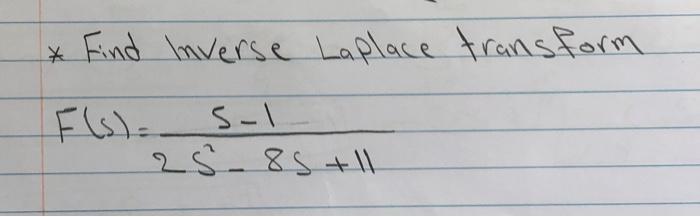 * Find Inverse Laplace transform
F(s) = s-1
2s² - 8s + 11